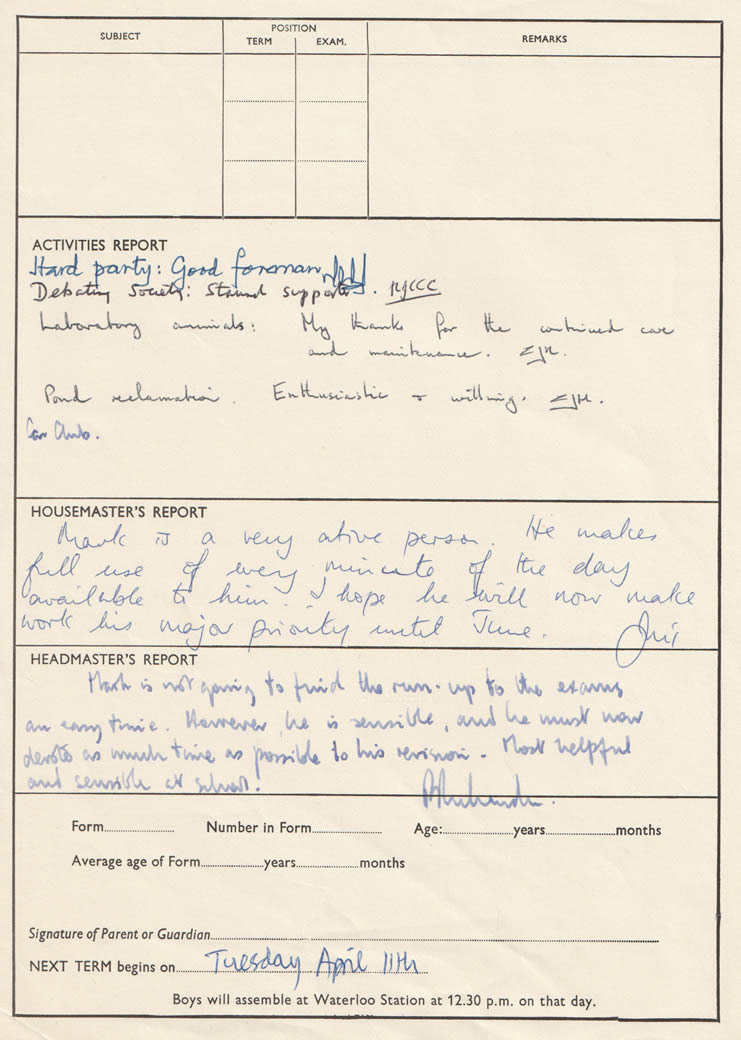 SUBJECT POSITION REMARKS
TERM EXAM.
ACTIVITIES REPORT
Hard party: Good foreman
Debating Society: Staund supporter. RJCCC
Laboratory animals: My thanks for the continued care
and maintenance. EJH.
Pond reclamation. Enthusiastic + willing. EJH.
Car Club.
HOUSEMASTER'S REPORT
Mark is a very ative person. He makes
full use of every minute of the day
available to him. I hope he will now make
work his major priority until June.
HEADMASTER'S REPORT
Mark is not going to find the run-up to the exams
an easy time. However, he is sensible, and he must now
devote as much time as possible to his revision. Most helpful
and sensible at school.
Form Number in Form Age: years months
Average age of Form years months
Signature of Parent or Guardian
NEXT TERM begins on Tuesday April 11th
Boys will assemble at Waterloo Station at 12.30 p.m. on that day.